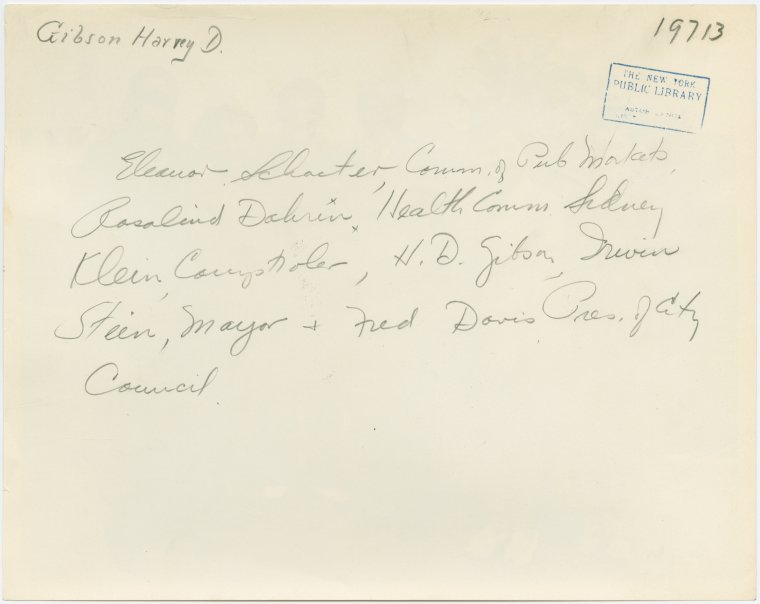 Gibson Harvey D.
19713
THE NEW YORK
PUBLIC LIBRARY
Eleanor Schacter, Comm. of Pub Markets,
Rosalind Dahrin, Health Comm. Sidney
Klein, Comptroler, H. D. Gibson, Irwin
Stein, Mayor + Fred Davis, Pres. of City
Council